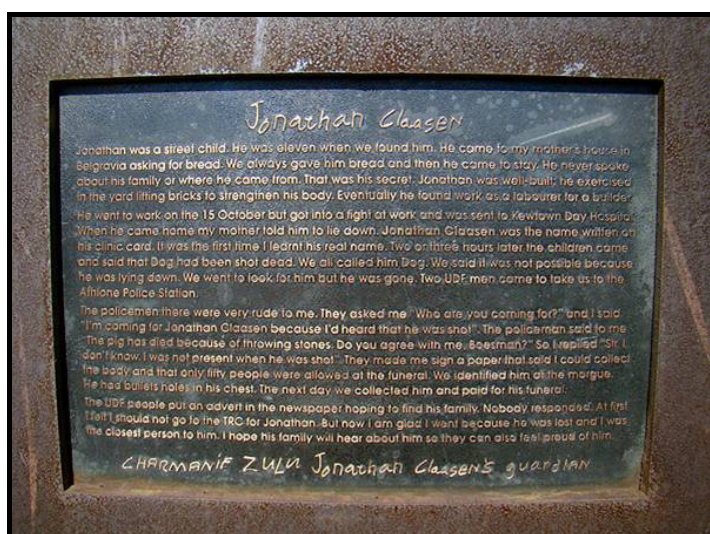 Jonathan Claasen
Jonathan was a street child. He was eleven when we found him. He came to my mother's house in
Belgravia asking for bread. We always gave him bread and then he came to stay. He never spoke
about his family or where he came from. That was his secret. Jonathan was well-built; he exercised
in the yard lifting bricks to strengthen his body. Eventually he found work as a labourer for a builder
He went to work on the 15 October but got into a fight at work and was sent to Kewtown Day Hospital
When he came home my mother told him to lie down. Jonathan Claasen was the name written on
his clinic card. It was the first time I learnt his real name. Two or three hours later the children came
and said that Dog had been shot dead. We all called him Dog. We said it was not possible because
he was lying down. We went to look for him but he was gone. Two UDF men came to take us to the
Athlone Police Station.
The policemen there were very rude to me. They asked me "Who are you coming for?" and I said
"I'm coming for Jonathan Claasen because I'd heard that he was shot". The policeman said to me
"The pig has died because of throwing stones. Do you agree with me, Boesman?" So I replied "Sir, I
don't know. I was not present when he was shot". They made me sign a paper that said I could collect
the body and that only fifty people were allowed at the funeral. We identified him at the morgue.
He had bullets holes in his chest. The next day we collected him and paid for his funeral.
The UDF people put an advert in the newspaper hoping to find his family. Nobody responded. At first
I felt I should not go to the TRC for Jonathan. But now I am glad I went because he was lost and I was
the closest person to him. I hope his family will hear about him so they can also feel proud of him.
CHARMANIF ZULU Jonathan Claasen's guardian